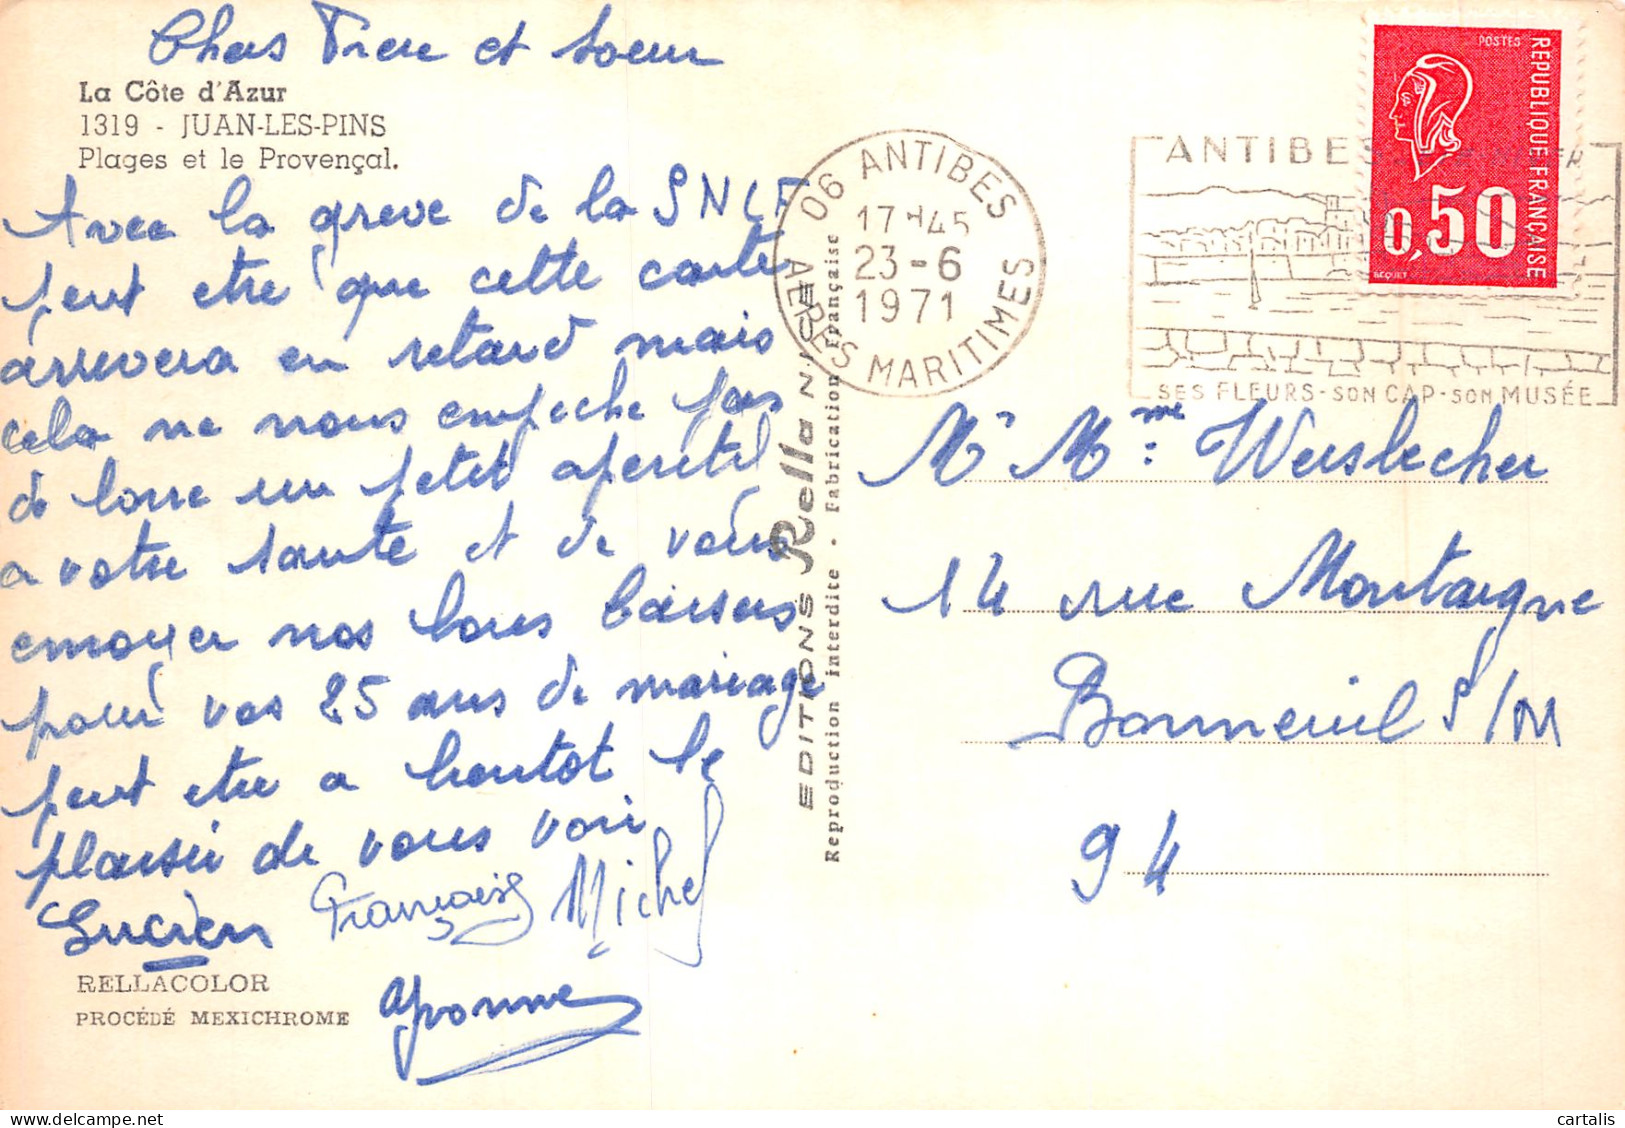 Chers Frere et soeur
La Côte d'Azur
1319 - JUAN-LES-PINS
Plages et le Provençal.
Avec la greve de la SNCF
peut etre que cette carte
arrivera en retard mais
cela ne nous empeche pas
de boire un petit aperitif
a votre santé et de vous
envoyer nos bons baisers
pour vos 25 ans de mariage
peut etre a bientot le
plaisir de vous voir
Lucien Françoise Michel
Yvonne
RELLACOLOR
PROCÉDÉ MEXICHROME
EDITIONS Rella NICE
Reproduction interdite - Fabrication Française
06 ANTIBES
17H45
23-6
1971
ALPES MARITIMES
ANTIBES
SES FLEURS-SON CAP-SON MUSÉE
POSTES
REPUBLIQUE FRANÇAISE
0,50
BEQUET
Mr Mme: Weislecher
14 rue Montaigne
Bonneuil S/M
94
cartalis